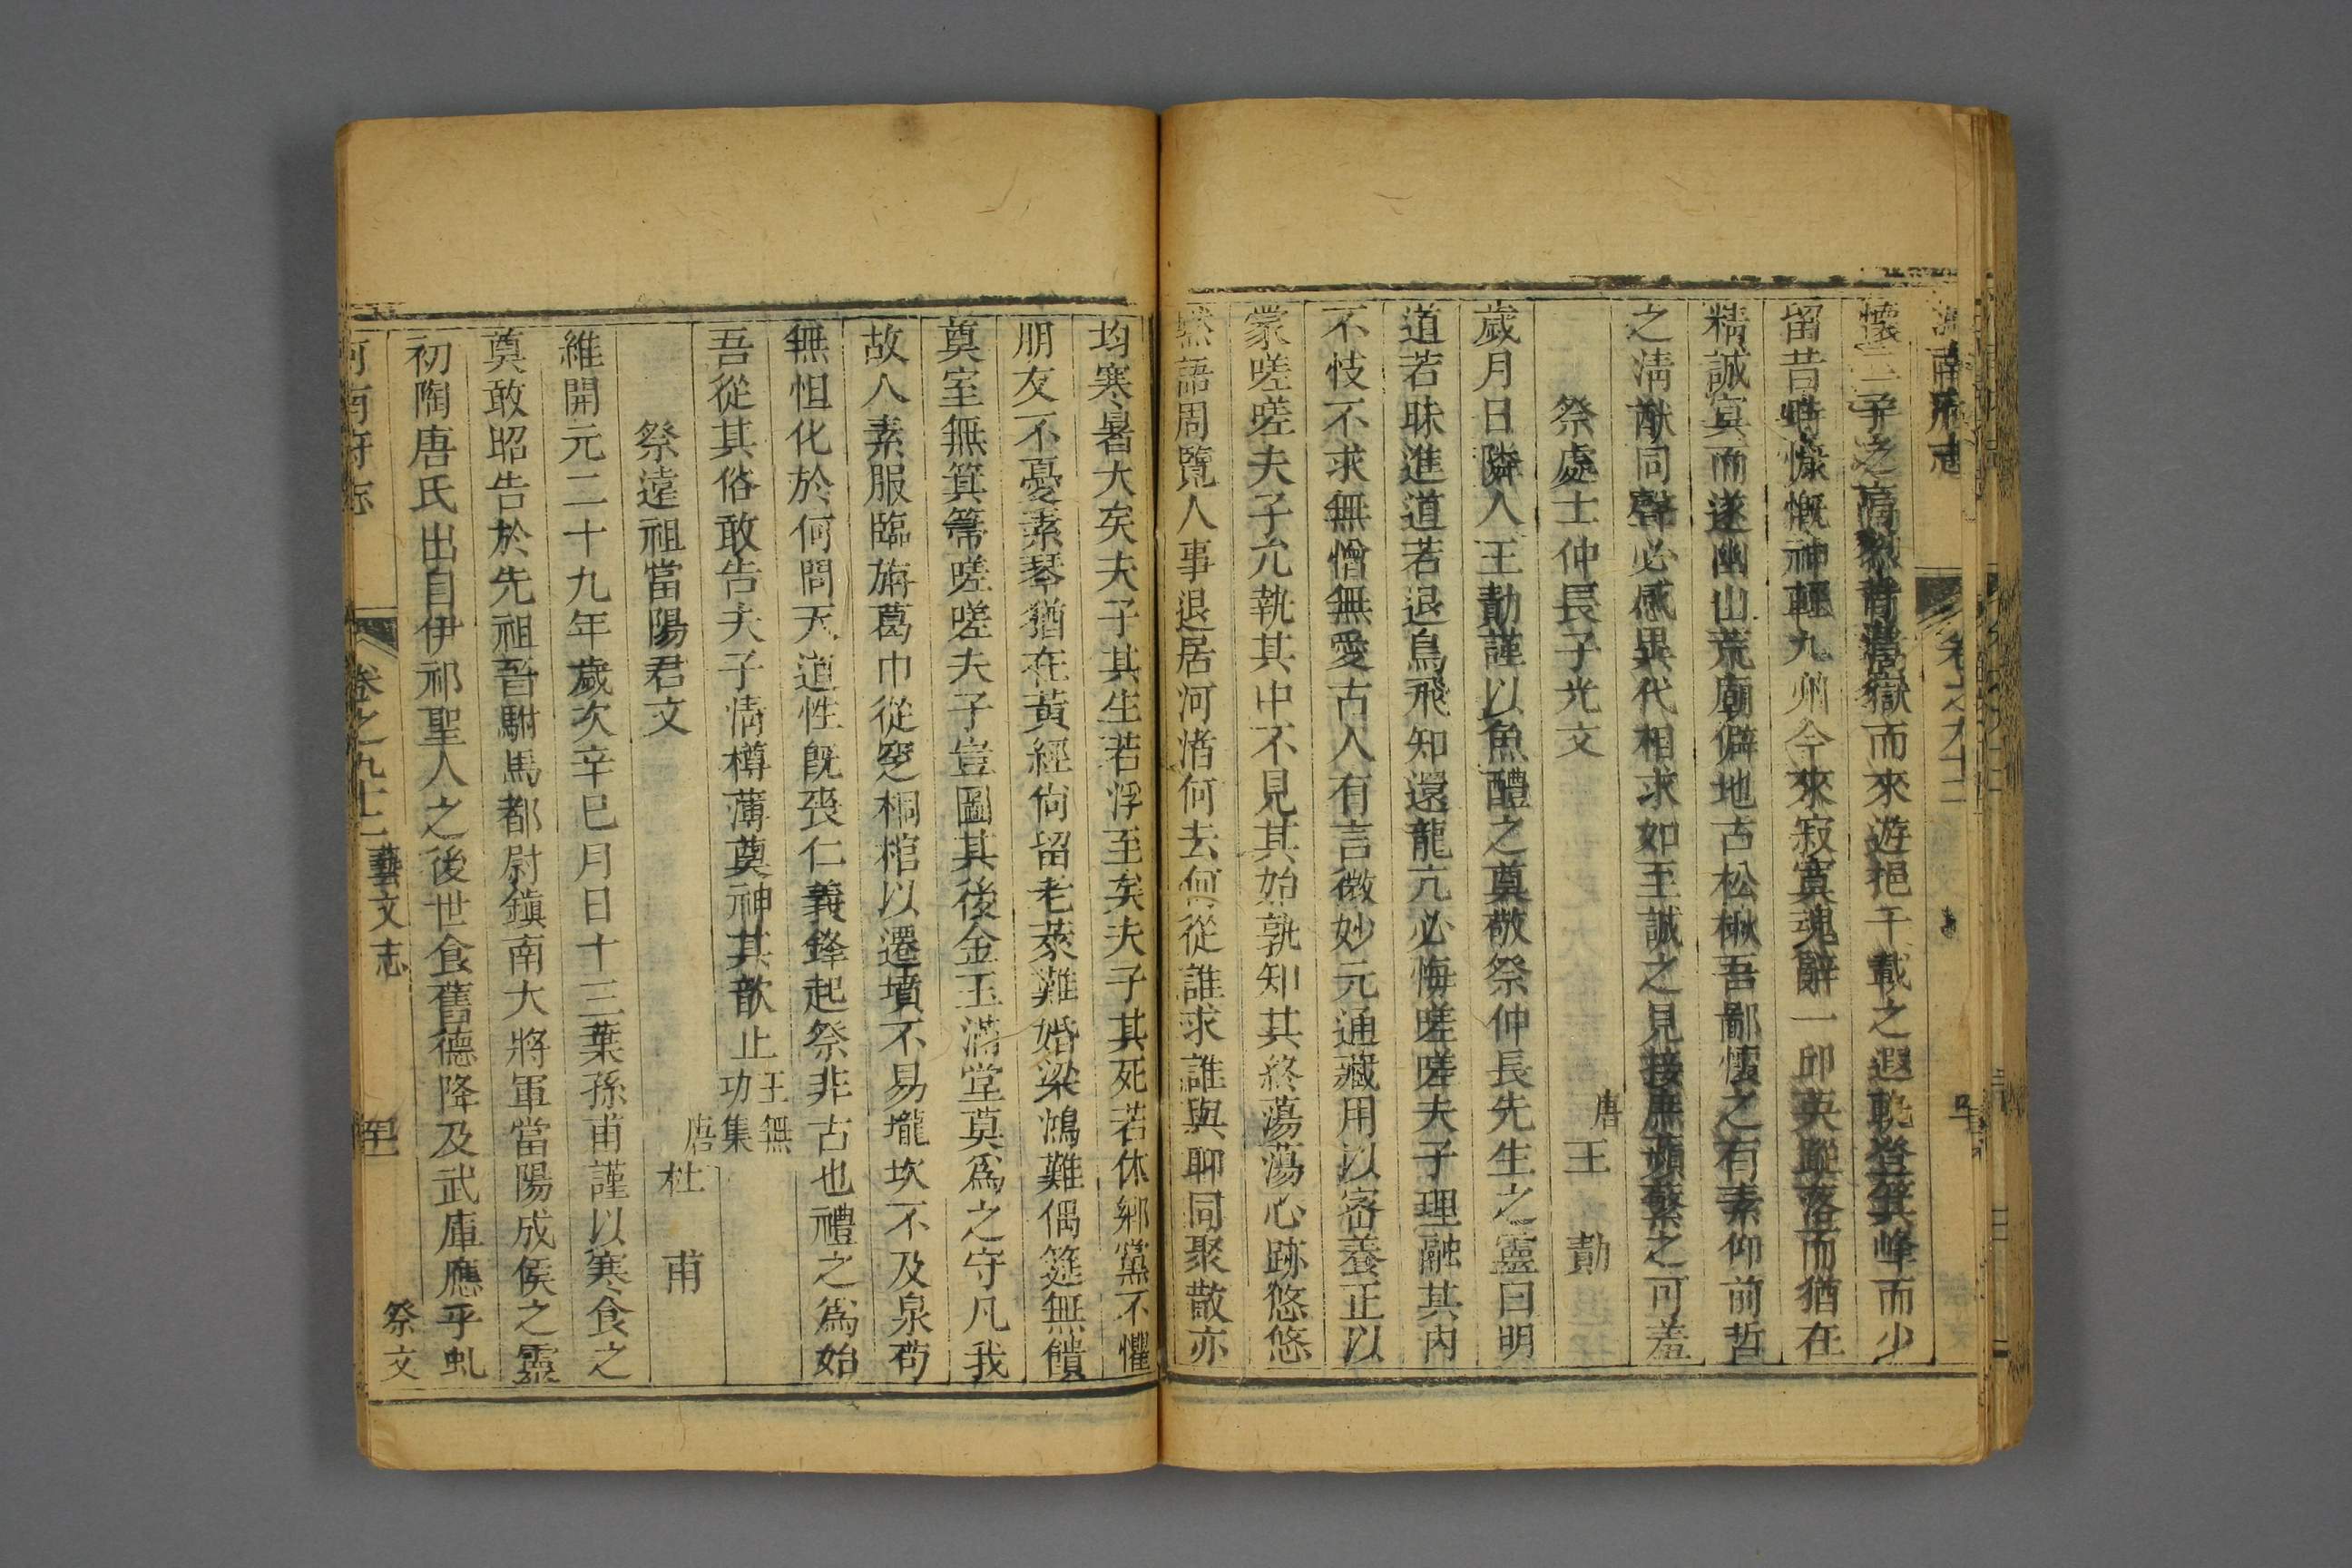 河南府志 卷之九十二
懷二子之高烈背嵩嶽而來遊挹千載之遐躭登箕峰而少
留昔時慷慨神輕九州今來寂寞魂辭一邱英聲落而猶在
精誠寘而遂幽山荒廟僻地古松楸吾鄙懷之有素仰前哲
之淸猷同聲必感異代相求如至誠之見接庶蘋蘩之可羞
祭處士仲長子光文 唐 王勣
歲月日隣人王勣謹以魚醴之奠敬祭仲長先生之靈曰明
道若昧進道若退鳥飛知還龍亢必悔嗟嗟夫子理融其內
不忮不求無憎無愛古人有言微妙元通藏用以密養正以
蒙嗟嗟夫子允執其中不見其始孰知其終蕩蕩心跡悠悠
黙語周覽人事退居河渚何去何從誰求誰與聊同聚散亦
均寒暑大矣夫子其生若浮至矣夫子其死若休鄉黨不懼
朋友不憂素琴猶在黃經尙留老萊難婚梁鴻難偶筵無饋
奠室無箕箒嗟嗟夫子豈圖其後金玉滿堂莫爲之守凡我
故人素服臨旃葛巾從窆桐棺以遷墳不易壠坎不及泉苟
無怛化於何問天道性旣喪仁義鋒起祭非古也禮之爲始
吾從其俗敢告夫子情樽薄奠神其歆止 王無功集
祭遠祖當陽君文 唐 杜甫
維開元二十九年歲次辛巳月日十三葉孫甫謹以寒食之
奠敢昭告於先祖晉駙馬都尉鎭南大將軍當陽成侯之靈
初陶唐氏出自伊祁聖人之後世食舊德降及武庫應乎虬
河南府志 卷之九十二 藝文志 祭文